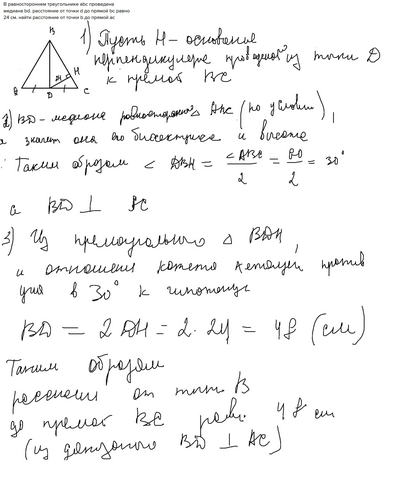 В равностороннем треугольнике abc проведена
медиана bd. расстояние от точки d до прямой bc равно
24 см. найти расстояние от точки b до прямой ac
B
H
24
A
D
C
1) Пусть H - основание
перпендикуляра проведённой из точки D
к прямой BC
2) BD - медиана равностороннего △ ABC (по условию),
а значит она его биссектриса и высота
Таким образом ∠ ABH = ∠ABC/2 = 60/2 = 30°
а BD ⊥ AC
3) Из прямоугольного △ BDH,
и отношения катета лежащего против
угла в 30° к гипотенузе
BD = 2 DH = 2 · 24 = 48 (см)
Таким образом
расстояние от точки B
до прямой BC равно 48 см
(из доказаного BD ⊥ AC)